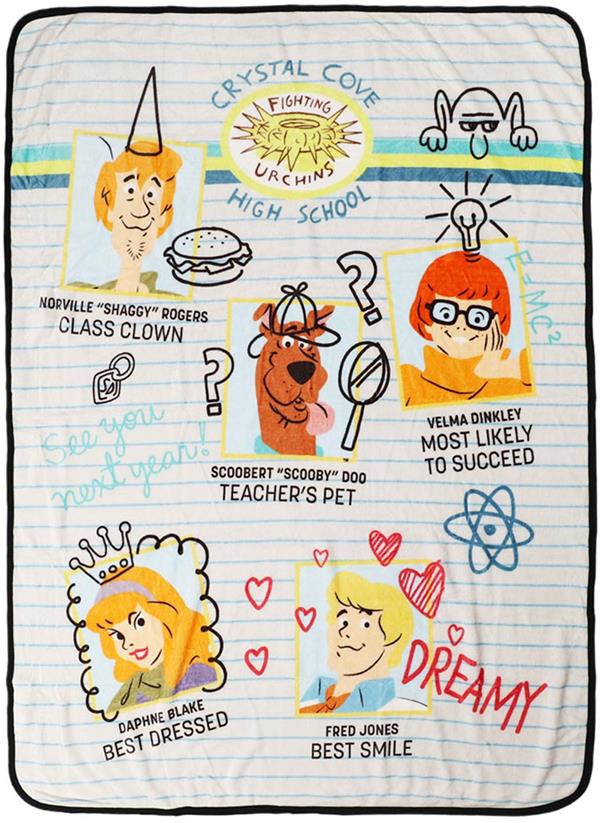 CRYSTAL COVE
FIGHTING
URCHINS
HIGH SCHOOL
NORVILLE "SHAGGY" ROGERS
CLASS CLOWN
?
E=MC²
?
VELMA DINKLEY
MOST LIKELY
TO SUCCEED
See you
next year!
SCOOBERT "SCOOBY" DOO
TEACHER'S PET
DREAMY
DAPHNE BLAKE
BEST DRESSED
FRED JONES
BEST SMILE